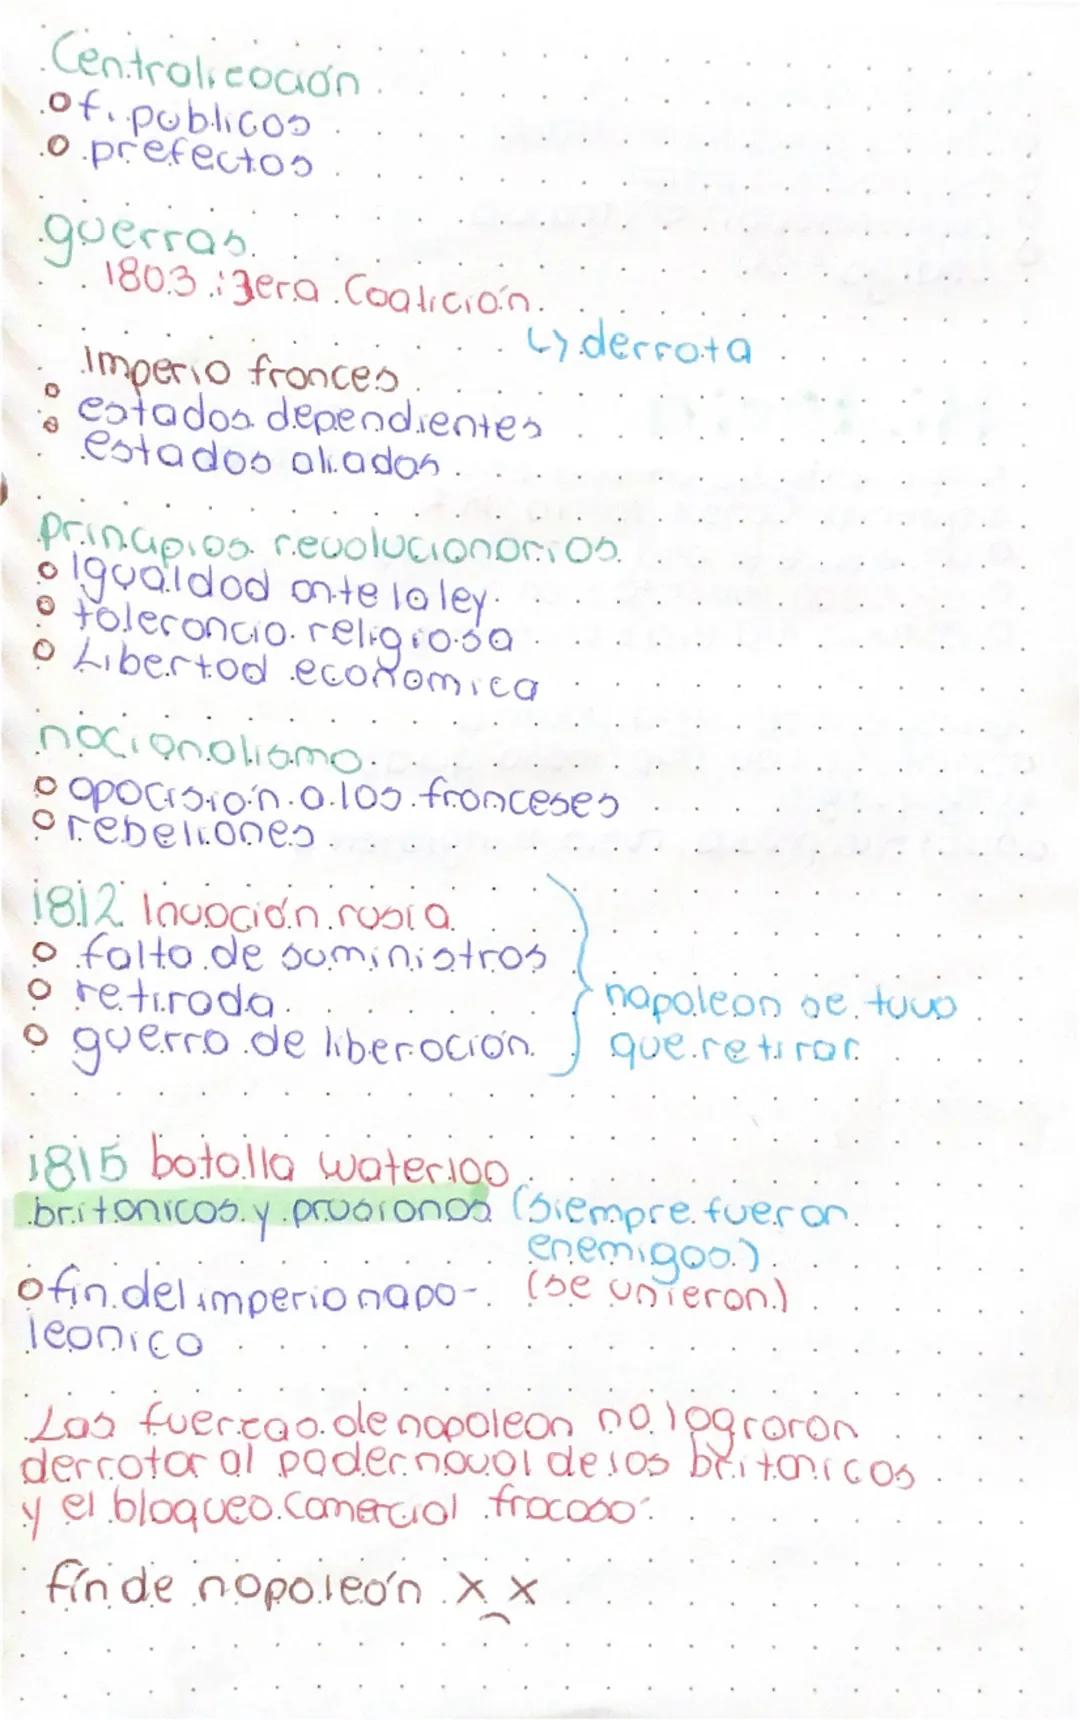 Centralización
o f. públicos
o prefectos
guerras
1803: 3era Coalición
↳ derrota
imperio frances
o estados dependientes
o estados aliados
principios revolucionarios
o Igualdad ante la ley
o tolerancia religiosa
o Libertad economica
nacionalismo
o opocisión a los franceses
o rebeliones
1812 Invación rusia
o falta de suministros
o retirada
o guerra de liberación
napoleon se tuvo
que retirar
1815 batalla waterloo
britanicos y prusianos (siempre fueron
enemigos)
o fin del imperio napo- (se unieron)
leonico
Las fuerzas de napoleon no lograron
derrotar al poder naval de los britanicos
y el bloqueo comercial fracaso
fin de napoleón x_x